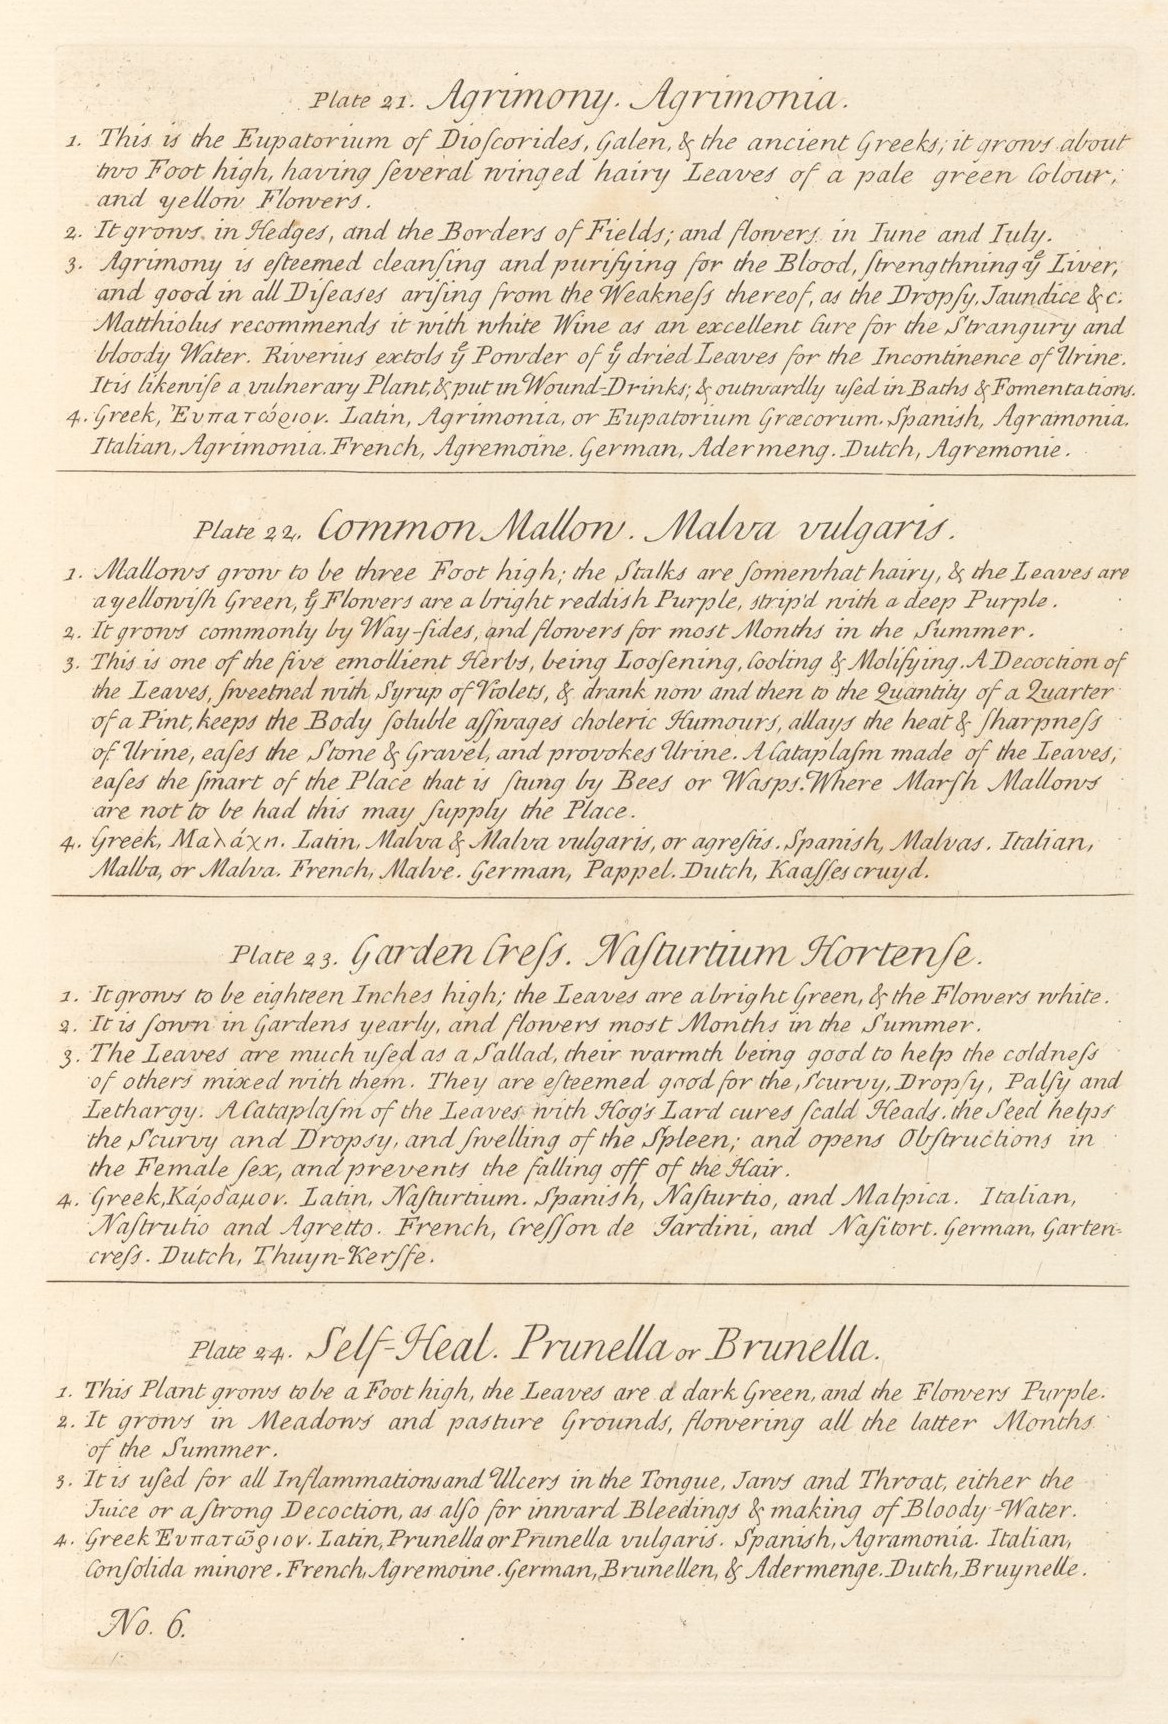 Plate 21. Agrimony. Agrimonia.
1. This is the Eupatorium of Dioſcorides, Galen, & the ancient Greeks; it grows about
two Foot high, having ſeveral winged hairy Leaves of a pale green Colour;
and yellow Flowers.
2. It grows in Hedges, and the Borders of Fields; and flowers in Iune and Iuly.
3. Agrimony is eſteemed cleanſing and purifying for the Blood, ſtrengthning yͤ Liver,
and good in all Diſeases ariſing from the Weakneſs thereof, as the Dropſy, Jaundice &c.
Matthiolus recommends it with white Wine as an excellent Cure for the Strangury and
bloody Water. Riverius extols yͤ Powder of yͤ dried Leaves for the Incontinence of Urine.
It is likewiſe a vulnerary Plant, & put in Wound-Drinks; & outwardly uſed in Baths & Fomentations.
4. Greek, Ἐυπατώριον. Latin, Agrimonia, or Eupatorium Græcorum. Spanish, Agramonia.
Italian, Agrimonia. French, Agremoine. German, Adermeng. Dutch, Agremonie.
Plate 22. Common Mallow. Malva vulgaris.
1. Mallows grow to be three Foot high; the Stalks are ſomewhat hairy, & the Leaves are
a yellowiſh Green, yͤ Flowers are a bright reddish Purple, strip'd with a deep Purple.
2. It grows commonly by Way-ſides, and flowers for most Months in the Summer.
3. This is one of the five emollient Herbs, being Looſening, Cooling & Molifying. A Decoction of
the Leaves, ſweetned with Syrup of Violets, & drank now and then to the Quantity of a Quarter
of a Pint, keeps the Body ſoluble aſſwages choleric Humours, allays the heat & ſharpneſs
of Urine, eaſes the Stone & Gravel, and provokes Urine. A Cataplaſm made of the Leaves,
eaſes the ſmart of the Place that is ſtung by Bees or Wasps. Where Marſh Mallows
are not to be had this may ſupply the Place.
4. Greek, Μαλάχη. Latin, Malva & Malva vulgaris, or agreſtis. Spanish, Malvas. Italian,
Malba, or Malva. French, Malve. German, Pappel. Dutch, Kaaſſes cruyd.
Plate 23. Garden Creſs. Naſturtium Hortenſe.
1. It grows to be eighteen Inches high; the Leaves are a bright Green, & the Flowers white.
2. It is ſown in Gardens yearly, and flowers most Months in the Summer.
3. The Leaves are much uſed as a Sallad, their warmth being good to help the coldneſs
of others mixed with them. They are eſteemed good for the, Scurvy, Dropſy, Palſy and
Lethargy. A Cataplaſm of the Leaves with Hog's Lard cures ſcald Heads. the Seed helps
the Scurvy and Dropsy, and ſwelling of the Spleen; and opens Obſtructions in
the Female ſex, and prevents the falling off of the Hair.
4. Greek, Κάρδαμον. Latin, Naſturtium. Spanish, Naſturtio, and Malpica. Italian,
Naſtrutio and Agretto. French, Creſſon de Jardini, and Naſitort. German, Garten-
creſs. Dutch, Thuyn-Kerſſe.
Plate 24. Self-Heal. Prunella or Brunella.
1. This Plant grows to be a Foot high, the Leaves are a dark Green, and the Flowers Purple.
2. It grows in Meadows and pasture Grounds, flowering all the latter Months
of the Summer.
3. It is uſed for all Inflammations and Ulcers in the Tongue, Jaws and Throat, either the
Juice or a ſtrong Decoction, as alſo for inward Bleedings & making of Bloody-Water.
4. Greek Ἐυπατῶριον. Latin, Prunella or Prunella vulgaris. Spanish, Agramonia. Italian,
Conſolida minore. French, Agremoine. German, Brunellen, & Adermenge. Dutch, Bruynelle.
No. 6.